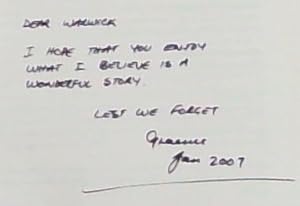 DEAR WARWICK
I HOPE THAT YOU ENJOY
WHAT I BELIEVE IS A
WONDERFUL STORY.
LEST WE FORGET
Graeme
Jan 2007